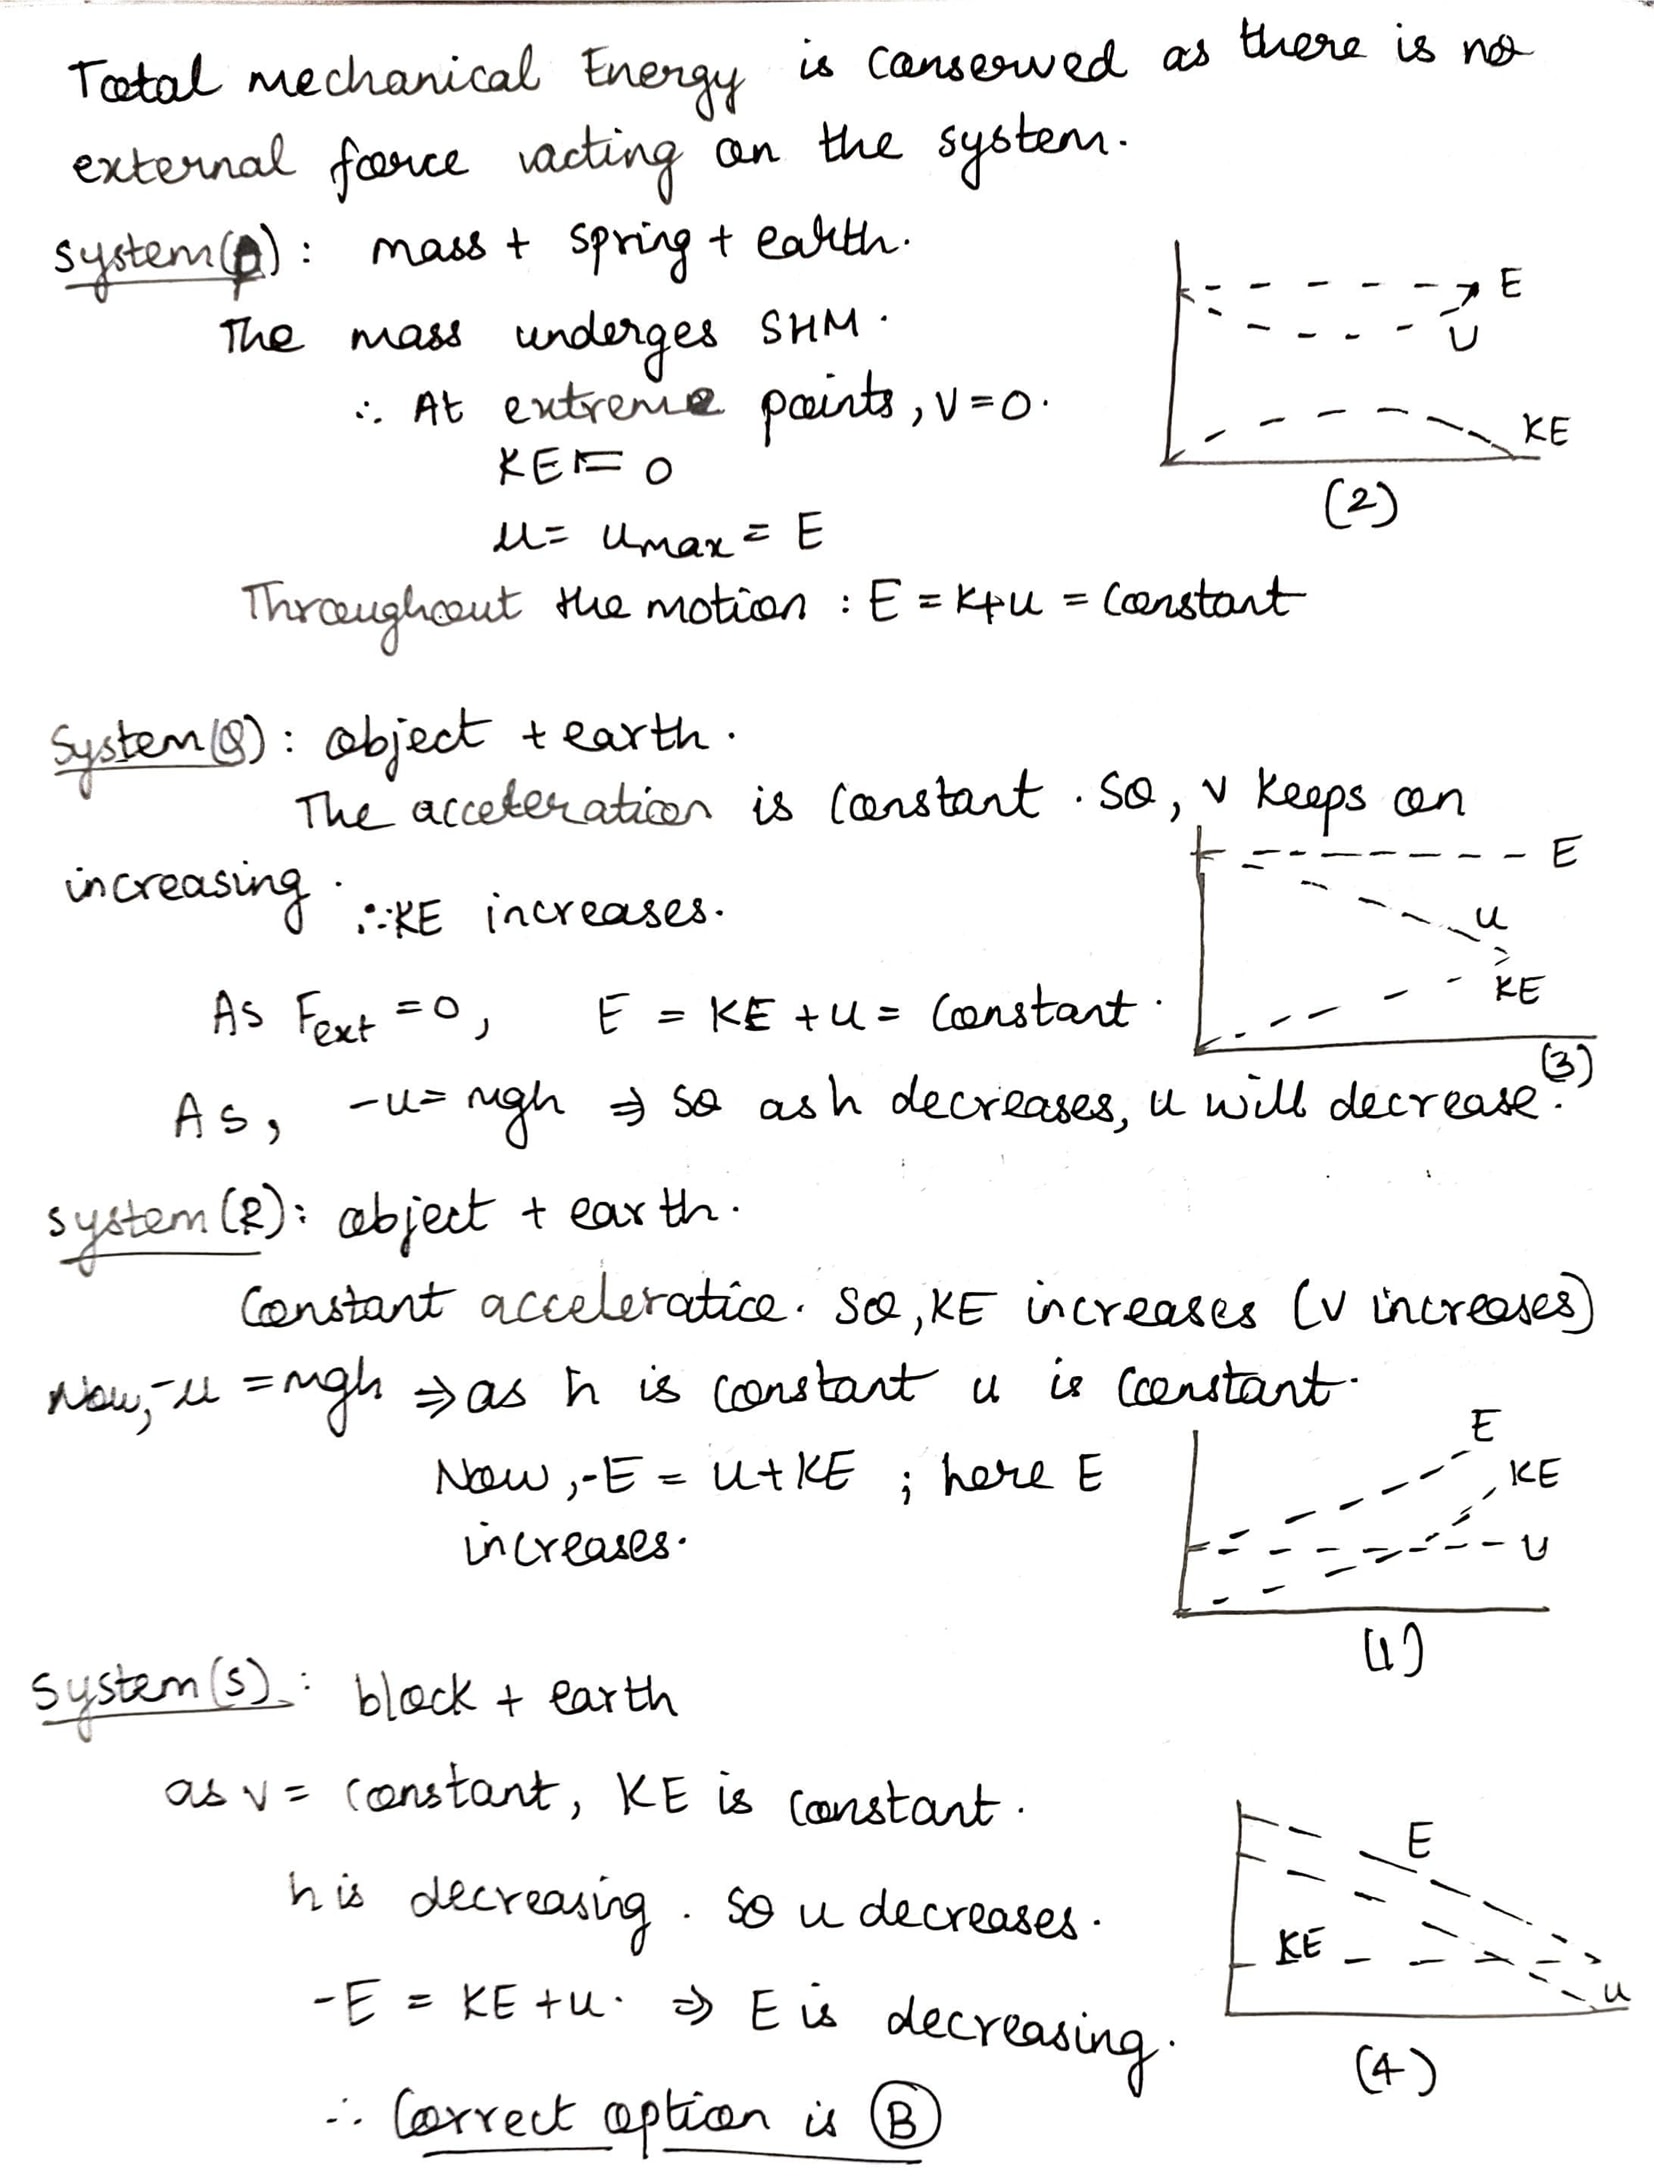 Total mechanical Energy is conserved as there is no
external force acting on the system.
system(P) : mass + spring + earth.
The mass underges SHM.
∴ At extreme points, v=0.
KE = 0
u = umax = E
Throughout the motion : E = K+u = constant
E
U
KE
(2)
System(Q) : object + earth.
The acceleration is constant. So, v keeps on
increasing.
∴ KE increases.
As Fext = 0, E = KE + u = constant.
As, -u = mgh ⇒ so as h decreases, u will decrease.
E
u
KE
(3)
system (R): object + earth.
Constant acceleratice. So, KE increases (v increases)
Now,-u = mgh ⇒ as h is constant u is constant.
Now,-E = u + KE ; here E
increases.
E
KE
U
(1)
system(S) : block + earth
as v = constant, KE is constant.
h is decreasing. So u decreases.
-E = KE + u. ⇒ E is decreasing.
∴ Correct option is B
E
KE
u
(4)